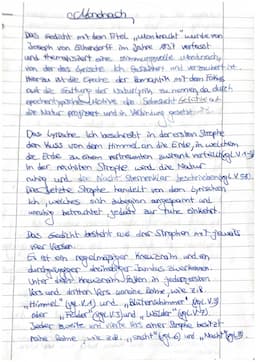 Mondnacht
Das Gedicht mit dem Titel „Mondnacht" wurde von
Joseph von Eichendorff im Jahre 1837 verfasst
und thematisiert eine stimmungsvolle Mondnacht,
von der das lyrische Ich fasziniert und verzaubert ist.
Hierzu ist die Epoche der Romantik mit dem Fokus
auf die
die Natur projiziert und in Verbindung gesetzt
Das lyrische Ich beschreibt in der ersten Strophe
den Kuss von dem Himmel an die Erde, in welchem
die Erde zu einem vertraeumten
In der Strophe wird die Natur
ruhig und die Nacht Sternenklar beschrieben (vgl. V.5-8).
Die letzte Strophe handelt von dem lyrischen
Ich, welches sich angespannt und
unruhig betrachtet, jedoch zur Ruhe einkehrt.
Das Gedicht besteht aus drei Strophen mit jeweils
vier Versen.
Es ist ein regelmäßiger Kreuzreim und ein
durchgängiger dreihebiger Jambus zu erkennen.
Unter dem Kreuzreim fallen in jedem ersten
Vers und dritten Vers unreine Reime, wie z.B.
„Himmel" (vgl. V.1) und „Blütenschimmer" (vgl. V.3)
oder „Felder" (vgl. V.5) und „Wälder" (vgl. V.7)
Jeder zweite und vierte Vers einer Strophe besitzt
reine Reime, wie z.B. „sacht" (vgl. V.6) und „Nacht" (vgl. V.8).